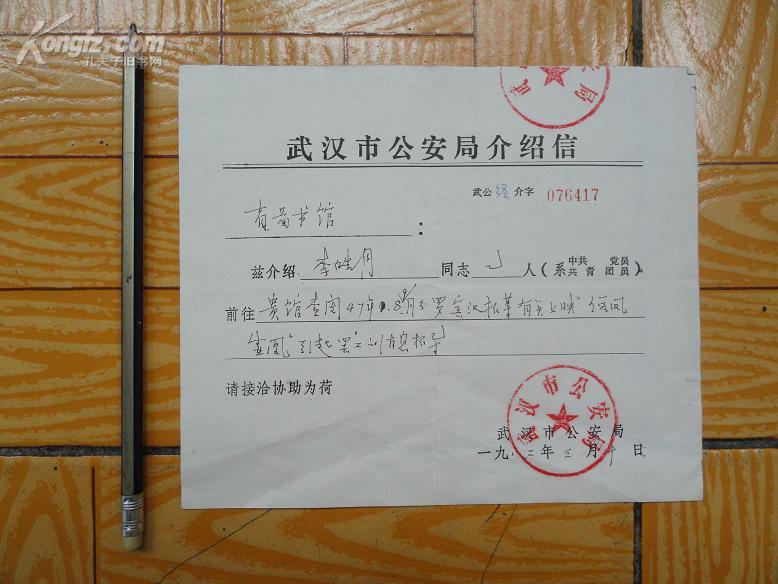 Kongfz.com
孔夫子旧书网
武汉市公安局
武汉市公安局介绍信
武公 经 介字 076417
省图书馆 :
兹介绍 李皓月 同志 人（系 中共 党员 共青团员）
前往 贵馆查阅47年 8 9月 罗宾汉 有关上映"
请接洽协助为荷
武汉市公安局
武汉市公安局
一九八二年三月 日